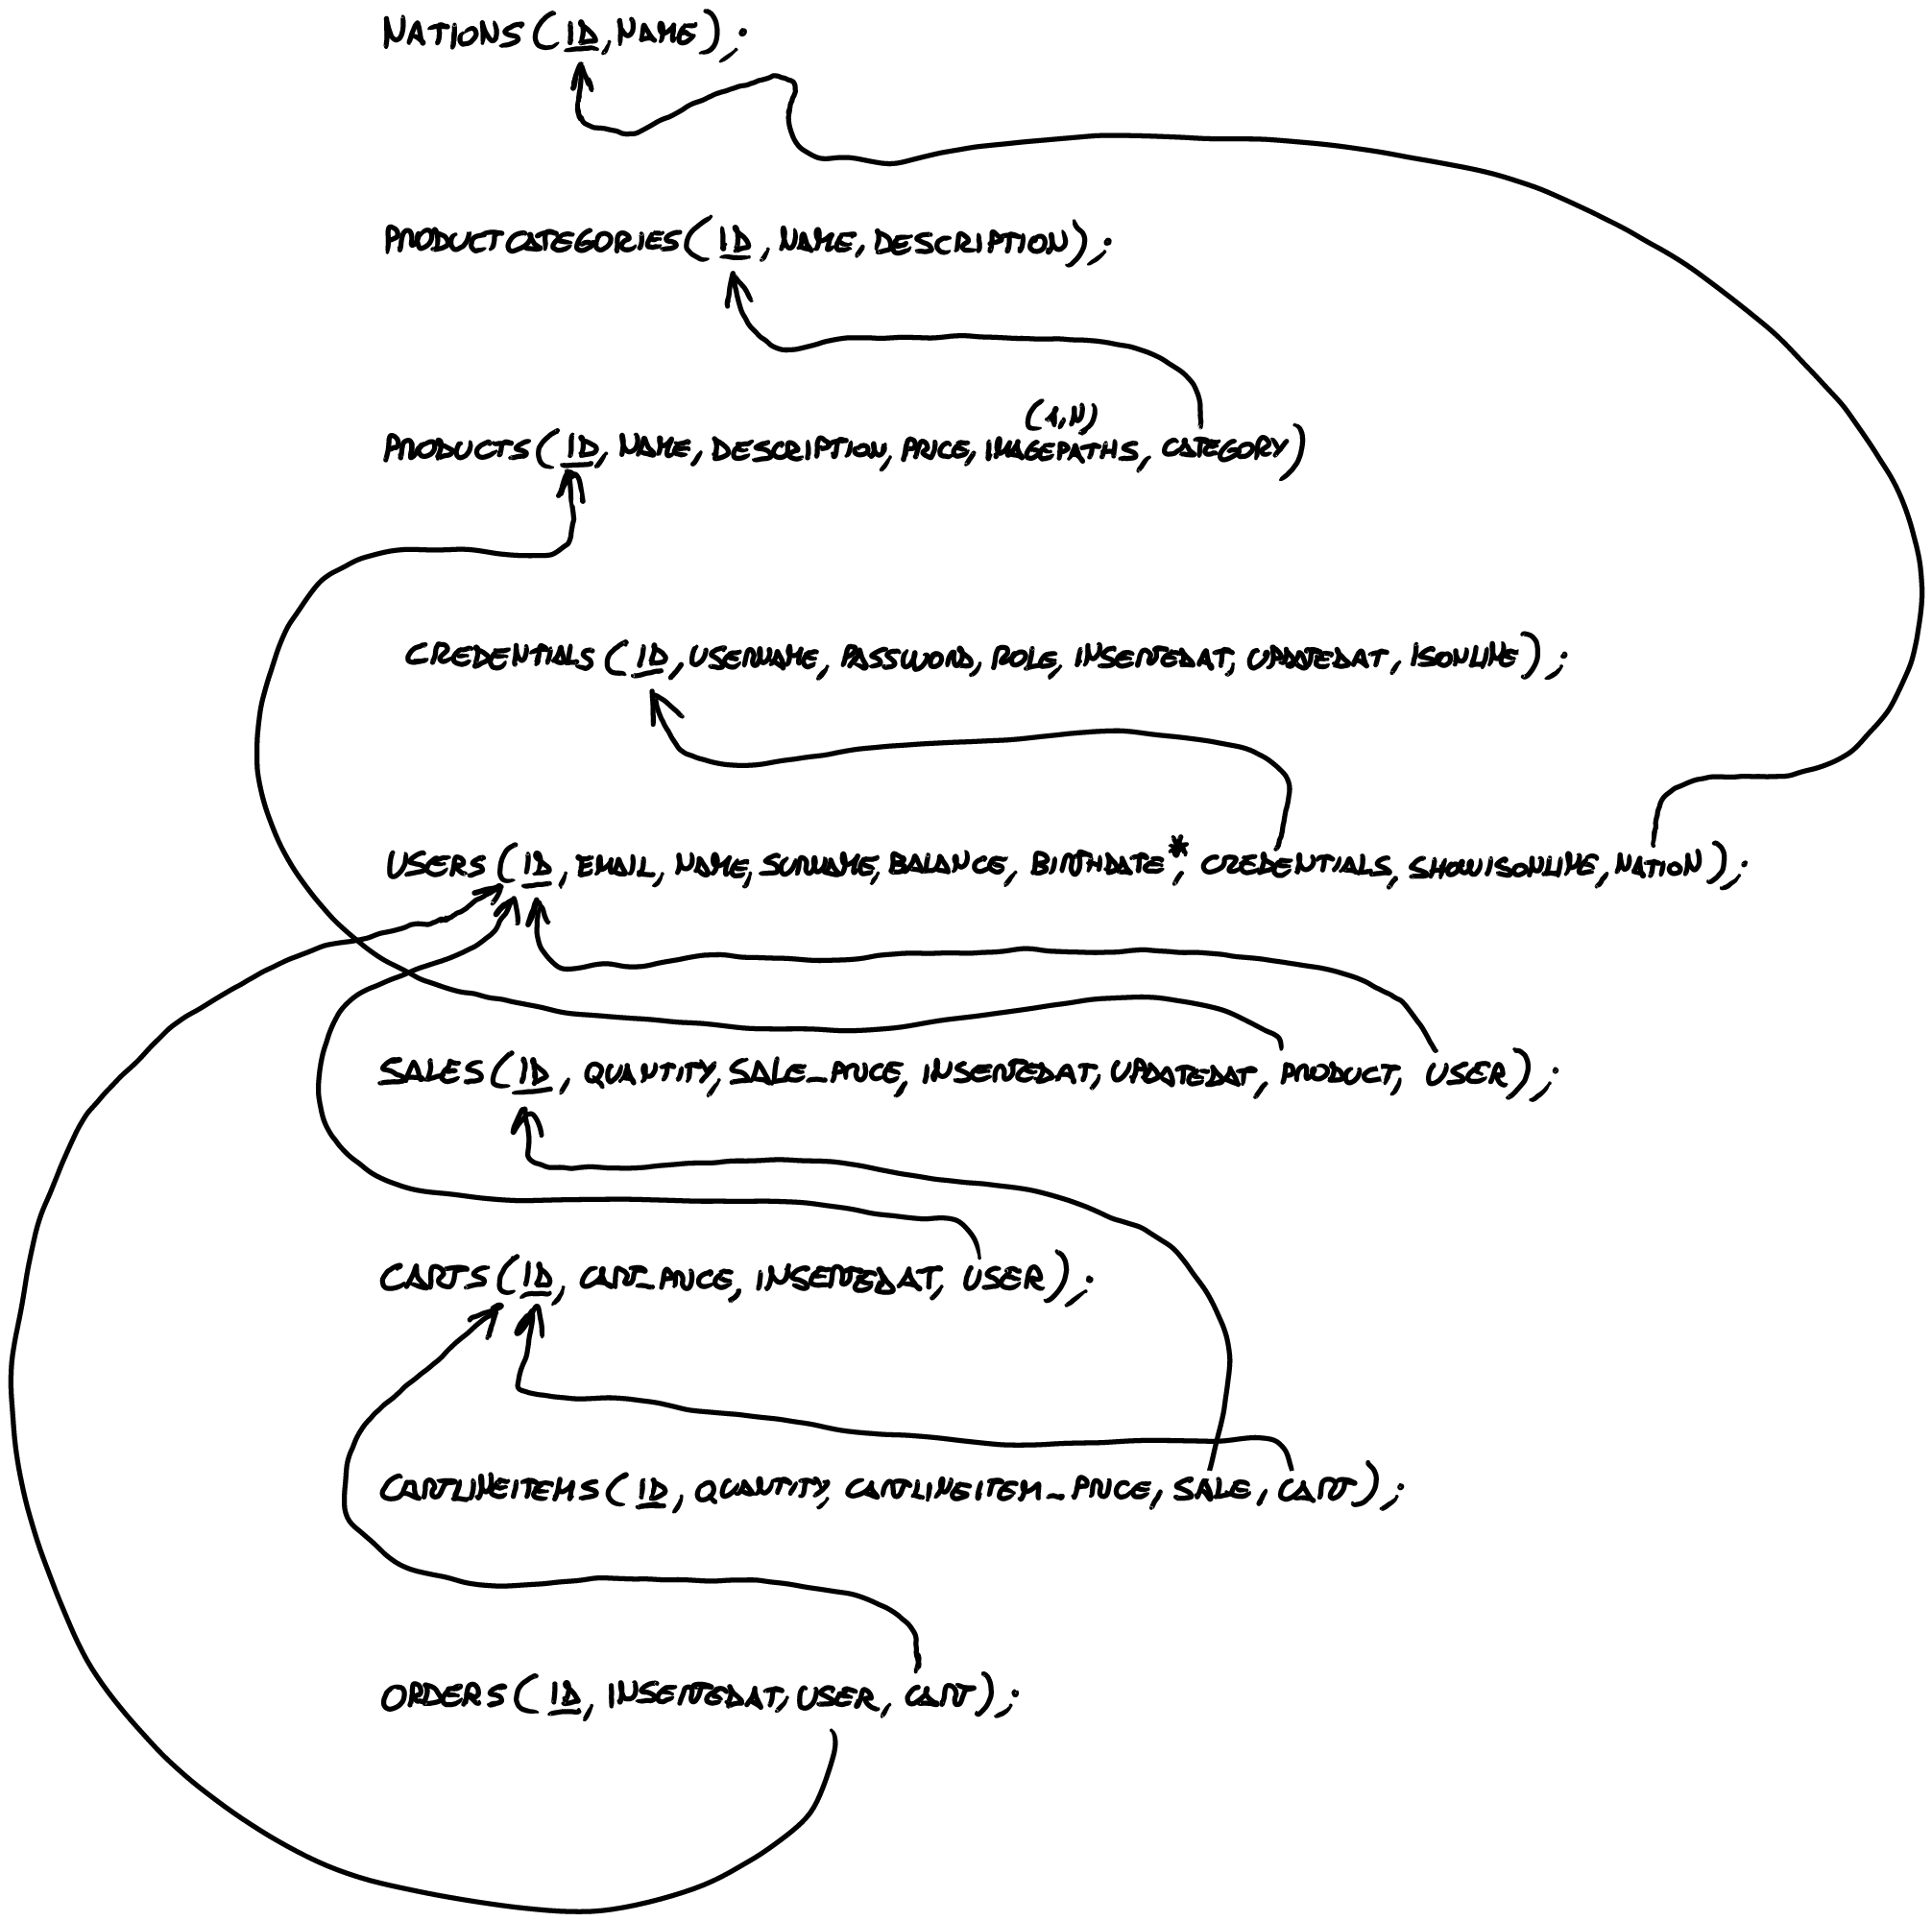 NATIONS(ID, NAME);
PRODUCTCATEGORIES(ID, NAME, DESCRIPTION);
(1,N)
PRODUCTS(ID, NAME, DESCRIPTION, PRICE, IMAGEPATHS, CATEGORY)
CREDENTIALS(ID, USERNAME, PASSWORD, ROLE, INSERTEDAT, UPDATEDAT, ISONLINE);
USERS(ID, EMAIL, NAME, SURNAME, BALANCE, BIRTHDATE*, CREDENTIALS, SHOWISONLINE, NATION);
SALES(ID, QUANTITY, SALE_PRICE, INSERTEDAT, UPDATEDAT, PRODUCT, USER);
CARTS(ID, CART_PRICE, INSERTEDAT, USER);
CARTLINEITEMS(ID, QUANTITY, CARTLINEITEM_PRICE, SALE, CART);
ORDERS(ID, INSERTEDAT, USER, CART);